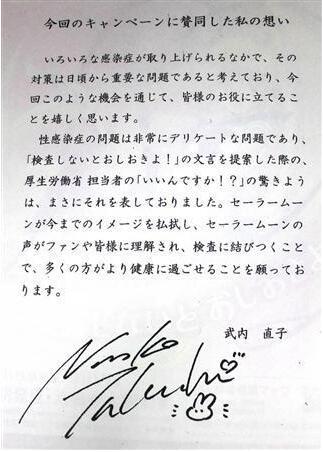 今回のキャンペーンに賛同した私の想い
いろいろな感染症が取り上げられるなかで、その
対策は日頃から重要な問題であると考えており、今
回このような機会を通じて、皆様のお役に立てるこ
とを嬉しく思います。
性感染症の問題は非常にデリケートな問題であり、
「検査しないとおしおきよ!」の文言を提案した際の、
厚生労働省 担当者の「いいんですか!?」の驚きよう
は、まさにそれを表しておりました。セーラームー
ンが今までのイメージを払拭し、セーラームーンの
声がファンや皆様に理解され、検査に結びつくこと
で、多くの方がより健康に過ごせることを願ってお
ります。
武内 直子
Naoko
Takeuchi